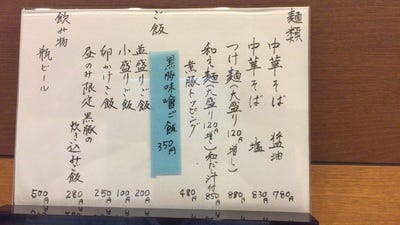 麺類
中華そば 醤油 780円
中華そば 塩 830円
つけ麺(大盛り120円増し) 880円
和え麺(大盛り120円増)和だし汁付 850円
煮豚トッピング 480円
ご飯
黒豚味噌ご飯 350円
並盛りご飯 200円
小盛りご飯 100円
卵かけご飯 250円
昼のみ限定 黒豚の炊き込み飯 280円
飲み物
瓶ビール 500円